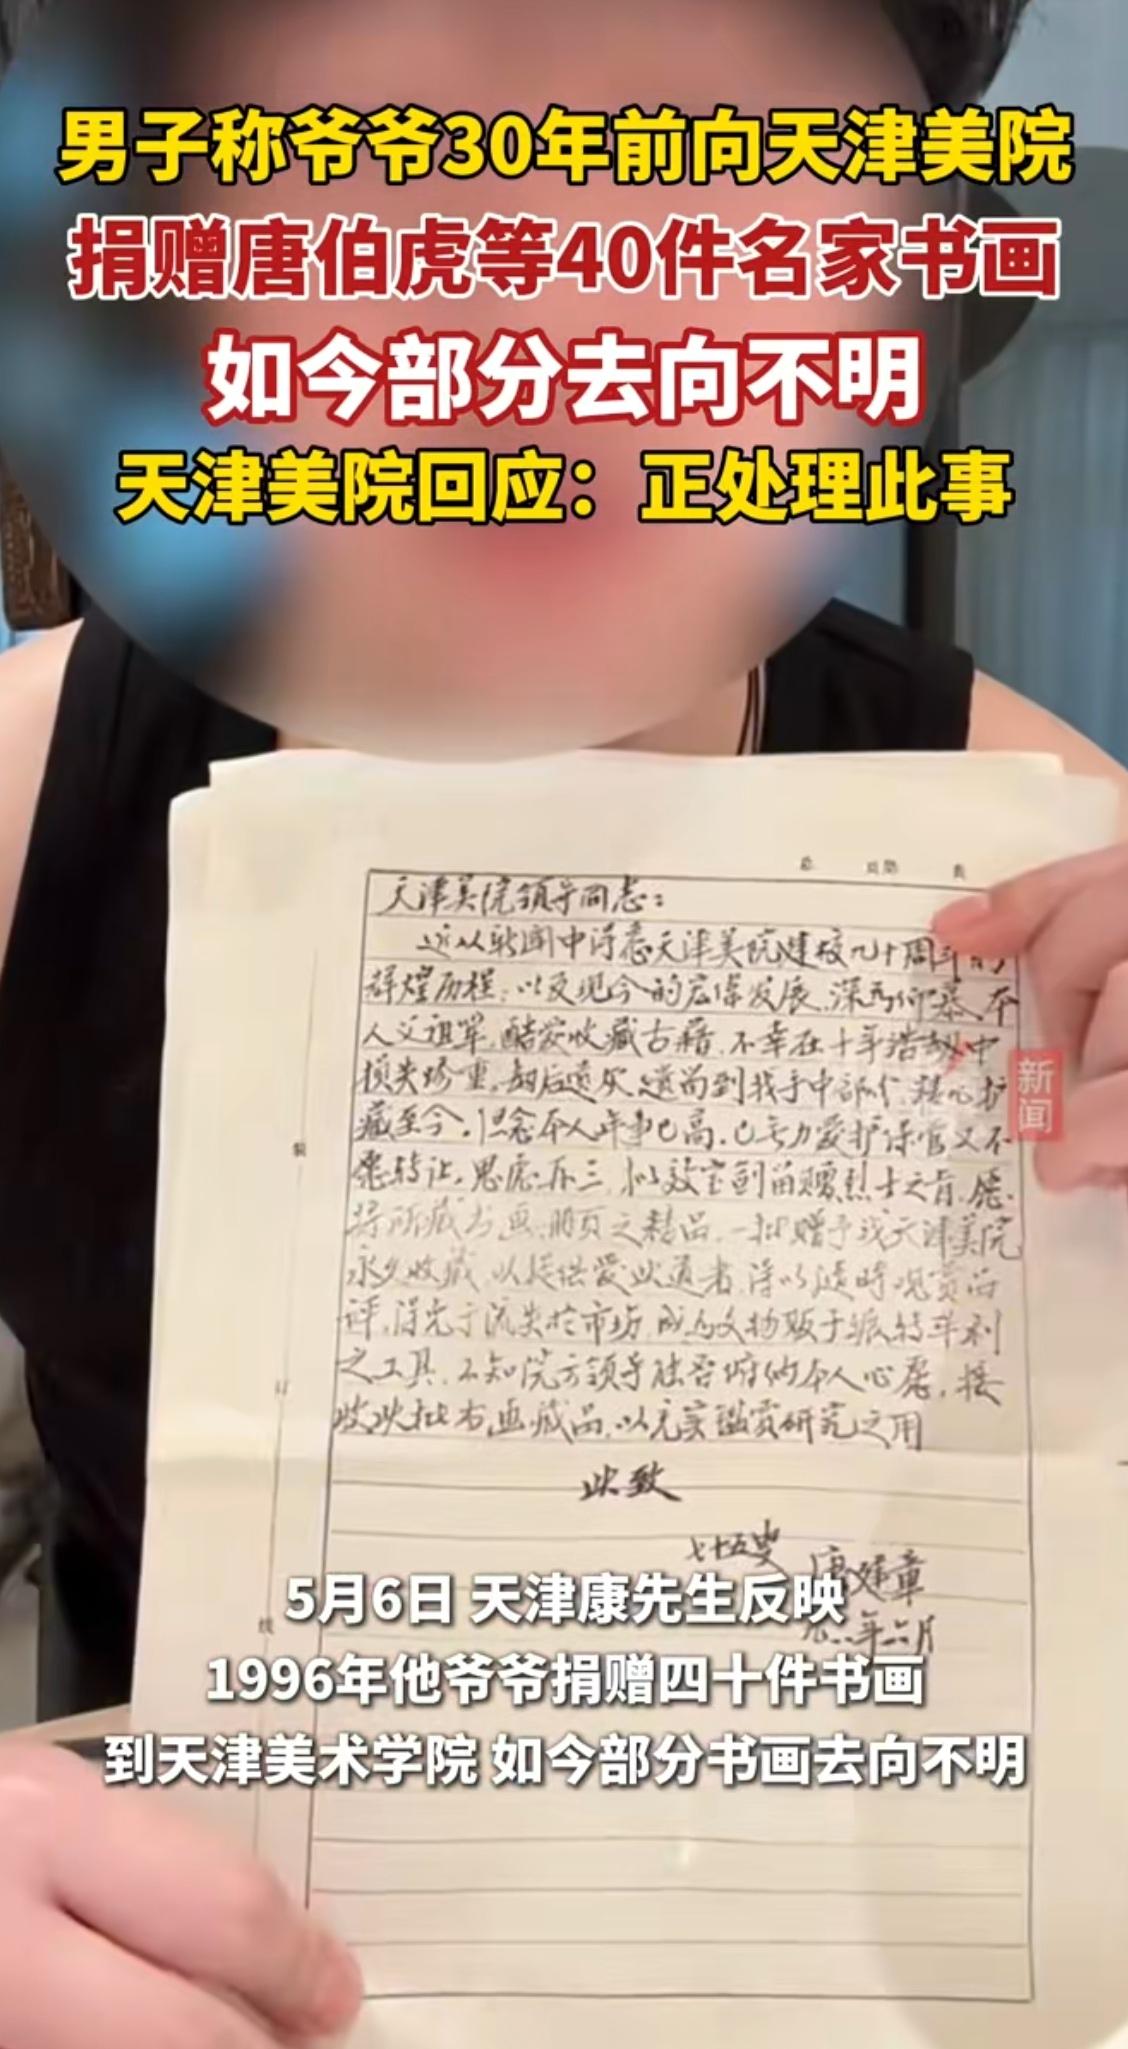 男子称爷爷30年前向天津美院
捐赠唐伯虎等40件名家书画
如今部分去向不明
天津美院回应：正处理此事
总 页第 页
天津美院领导同志：
近从新闻中得悉天津美院建校九十周年的
辉煌历程；以及现今的宏伟发展、深为仰慕、本
人父祖辈、酷爱收藏古籍、不幸在十年浩劫中
损失惨重、劫后遗灰、遗尚到我手中部份、精心护
藏至今。但念本人年事已高、已无力爱护保管又不
愿转让。思虑再三、拟效宝剑苗赠烈士之旨、愿
将所藏书画、册页之精品、一批赠予我天津美院
永久收藏、以提供爱此道者、得以随时观赏品
评、得免于流失於市场、成为文物贩子辗转牟利
之工具、不知院方领导能否俯纳本人心愿、接
收此批书画藏品、以充实鉴赏研究之用
此致
七十五叟 康建章
年六月
装
订
线
新闻
5月6日 天津康先生反映
1996年他爷爷捐赠四十件书画
到天津美术学院 如今部分书画去向不明